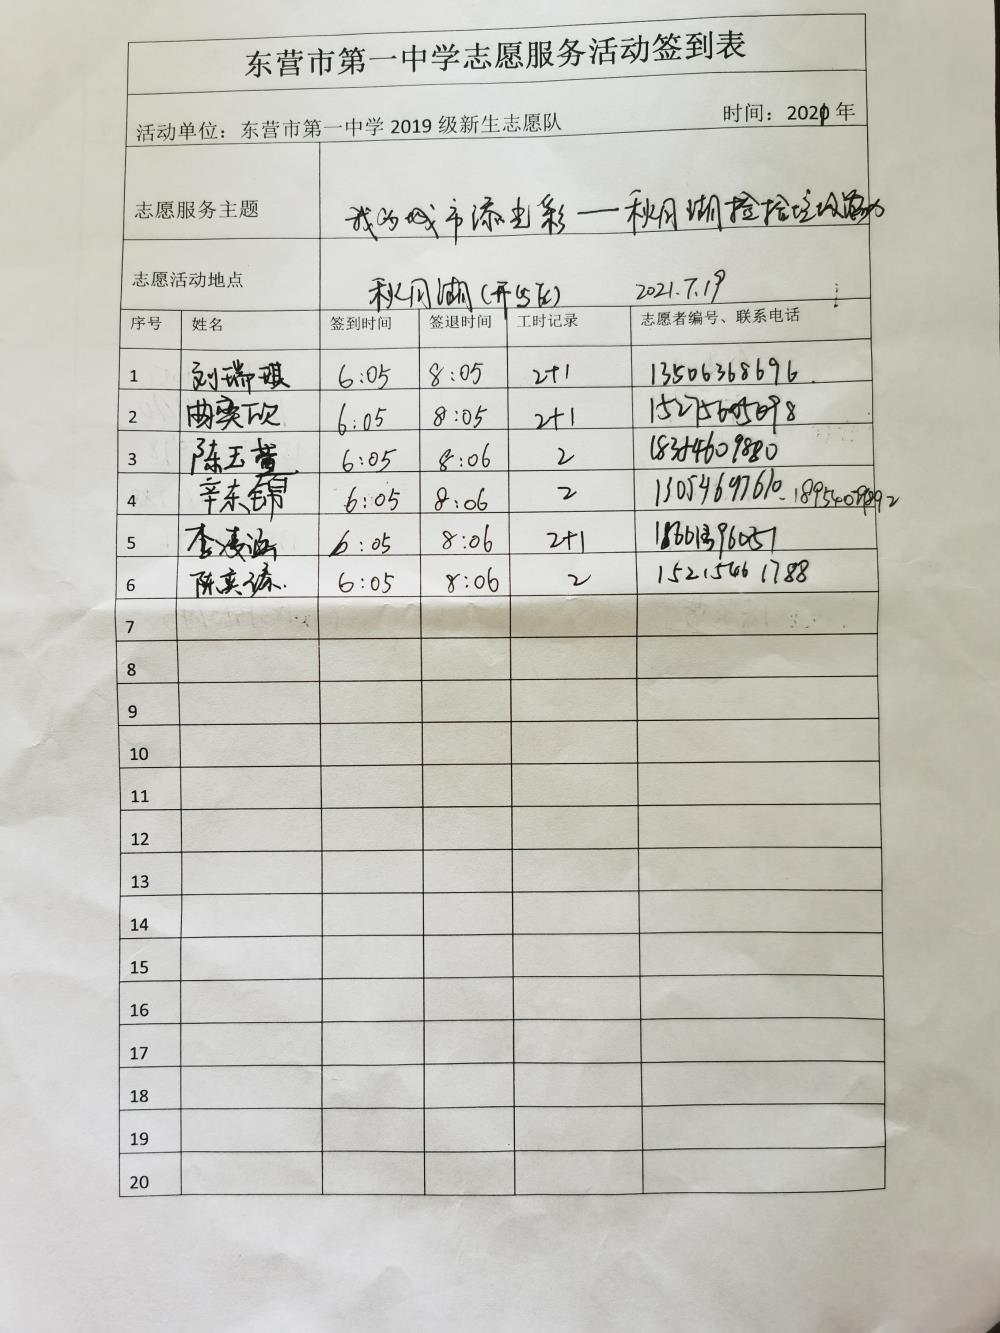 东营市第一中学志愿服务活动签到表
活动单位：东营市第一中学 2019 级新生志愿队 时间：2021 年
志愿服务主题 我为城市添光彩——秋月湖捡拾垃圾活动
志愿活动地点 秋月湖(开发区) 2021.7.19
序号 姓名 签到时间 签退时间 工时记录 志愿者编号、联系电话
1 刘瑞琪 6:05 8:05 2+1 13506368696
2 曲奕欣 6:05 8:05 2+1
3 陈玉萱 6:05 8:06 2
4 辛东锦 6:05 8:06 2
5 李凌涵 6:05 8:06 2+1
6 陈奕 6:05 8:06 2 15215461788
7
8
9
10
11
12
13
14
15
16
17
18
19
20